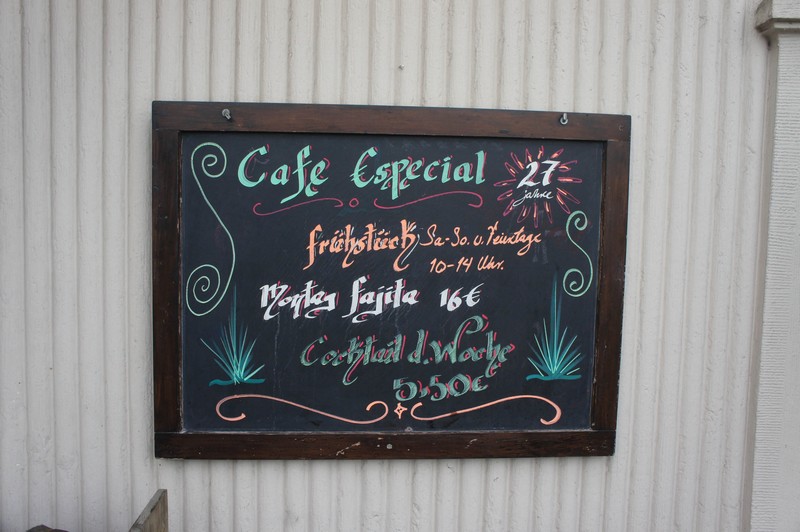 Cafe Especial
27
Jahre
Frühstück Sa-So. u. Feiertage
10-14 Uhr.
Montag Fajita 16€
Cocktail d. Woche
5,50€